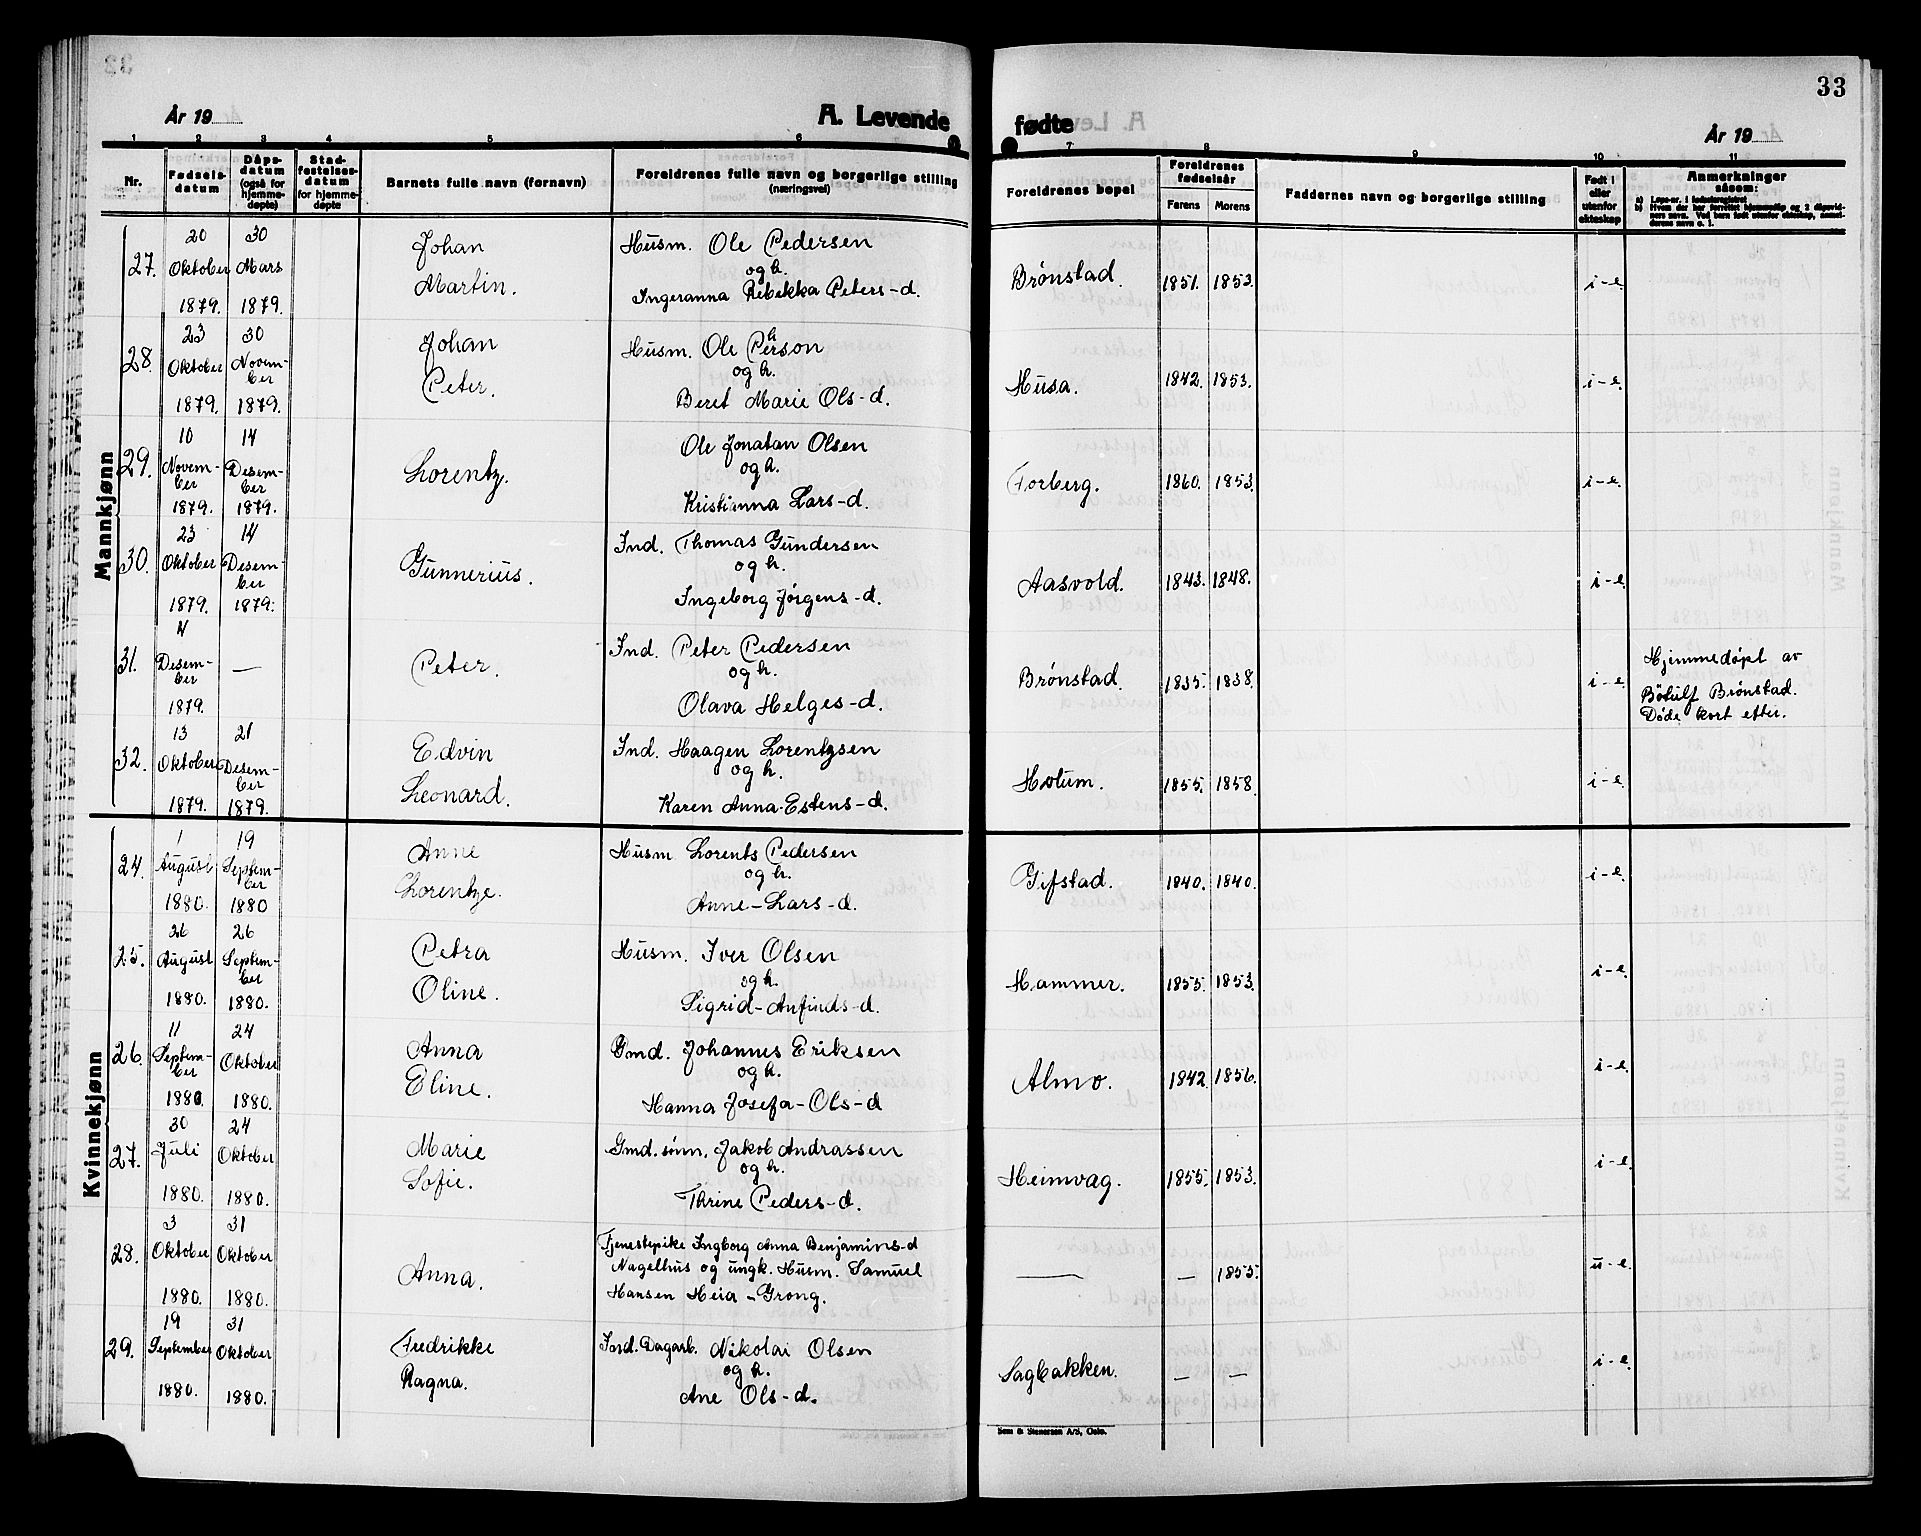 33
År 19
A. Levende
fødte
År 19
1 2 3 4 5 6 7 8 9 10 11
Nr.
Fødsels-
datum
Dåps-
datum
(også for
hjemme-
døpte)
Stad-
festelses-
datum
for hjemme-
døpte
Barnets fulle navn (fornavn)
Foreldrenes fulle navn og borgerlige stilling
(næringsvei)
Foreldrenes bopel
Foreldrenes
fødselsår
Farens Morens
Faddernes navn og borgerlige stilling
Født i
eller
utenfor
ekteskap
Anmerkninger
såsom:
a) Løpe-nr. i fødselsregistret
Mannkjønn
27. 20 Oktober 1879. 30 Mars 1879.
Johan
Martin.
Husm. Ole Pedersen
og h.
Ingeranna Rebekka Peters-d.
Brønstad. 1851. 1853. i-e.
28. 23 Oktober 1879. 30 Novem-
ber 1879.
Johan
Peter.
Husm. Ole Person
og h.
Beret Marie Ols-d.
Husa. 1842. 1853. i-e.
29. 10 Novem-
ber 1879. 14 Desem-
ber 1879.
Lorentz.
Ole Jonatan Olsen
og h.
Kristianna Lars-d.
Forberg. 1860. 1853. i-e.
30. 23 Oktober 1879. 14 Desem-
ber 1879.
Gunnerius.
Ind. Thomas Gundersen
og h.
Ingeborg Jørgens-d.
Aasvold. 1843. 1848. i-e
31. 4 Desem-
ber 1879. —
Peter.
Ind. Peter Pedersen
og h.
Olava Helges-d.
Brønstad. 1835. 1838. i-e.
Hjemmedøpt av
Botulf Brønstad.
Døde kort etter.
32. 13 Oktober 1879. 21 Desem-
ber 1879.
Edvin
Leonard.
Ind. Haagen Lorentzsen
og h.
Karen Anna Estens-d.
Hotum. 1855. 1858. i-e.
Kvinnekjønn
24. 1 August 1880. 19 Septem-
ber 1880
Anne
Lorentze.
Husm Lorents Pedersen
og h.
Anne-Lars-d.
Gifstad. 1840. 1840. i-e.
25. 26 August 1880. 26 Septem-
ber 1880.
Petra
Oline.
Husm. Iver Olsen
og h.
Sigrid-Anfinds-d.
Hammer. 1855. 1853. i-e.
26. 11 Septem-
ber 1880. 24 Oktober 1880.
Anna
Eline.
Gmd. Johannes Eriksen
og h.
Hanna Josefa-Ols-d
Almo. 1842. 1856. i-e.
27. 30 Juli 1880. 24 Oktober 1880.
Marie
Sofie.
Gmd. sønn. Jakob Andrassen
og h.
Thrine Peders-d.
Heimvag. 1855. 1853. i-e.
28. 3 Oktober 1880. 31 Oktober 1880.
Anna.
Tjenestepike Ingborg Anna Benjamins-d
Nagelhus og ungk. Husm. Samuel
Hansen Heia-Grong.
— — 1855. u-e.
29. 19 September 1880. 31 Oktober 1880.
Fredrikke
Ragna.
Ind. Dagarb. Nikolai Olsen
og h.
Ane Ols-d.
Sagbakken. — — i-e.
Sem & Stenersen A/S, Oslo.